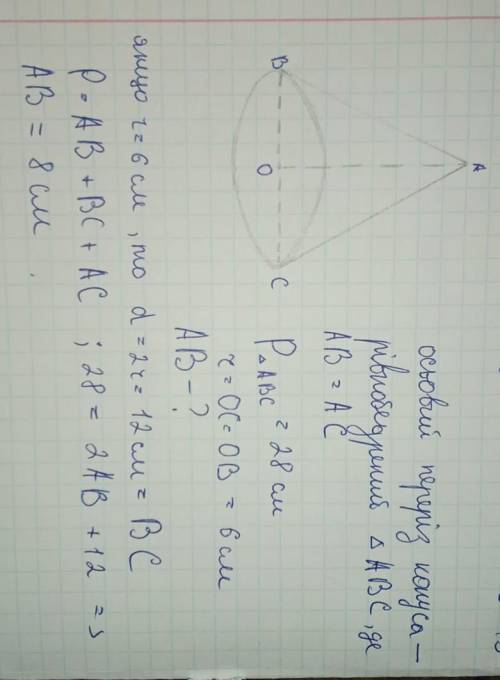 осьовий переріз конуса —
рівнобедрений △ ABC, де
AB = AC
P△ABC = 28 см
r = OC = OB = 6 см
AB - ?
A
B
O
C
якщо r = 6 см, то d = 2r = 12 см = BC
P = AB + BC + AC ; 28 = 2AB + 12 =>
AB = 8 см.